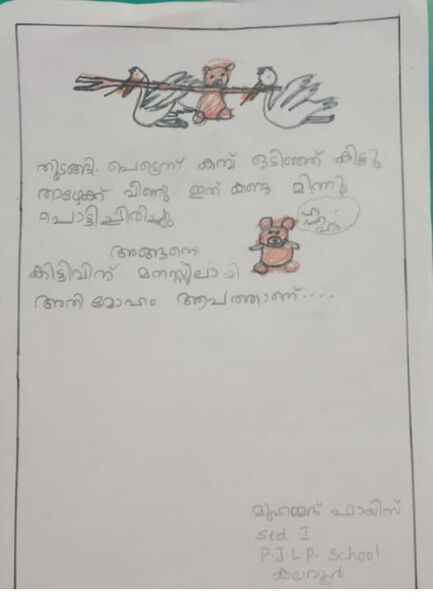 തുടങ്ങി. പെട്ടെന്ന് കമ്പ് ഒടിഞ്ഞ് കിട്ടു
താഴേക്ക് വീണു. ഇത് കണ്ട മിന്നു
പൊട്ടിച്ചിരിച്ചു
ഹ ...
ഹ ഹ
അങ്ങനെ
കിട്ടിവിന് മനസ്സിലായി
അതി മോഹം ആപത്താണ്....
മുഹമ്മദ് ഫായിസ്
std I
P.J.L.P. School
കലവൂർ